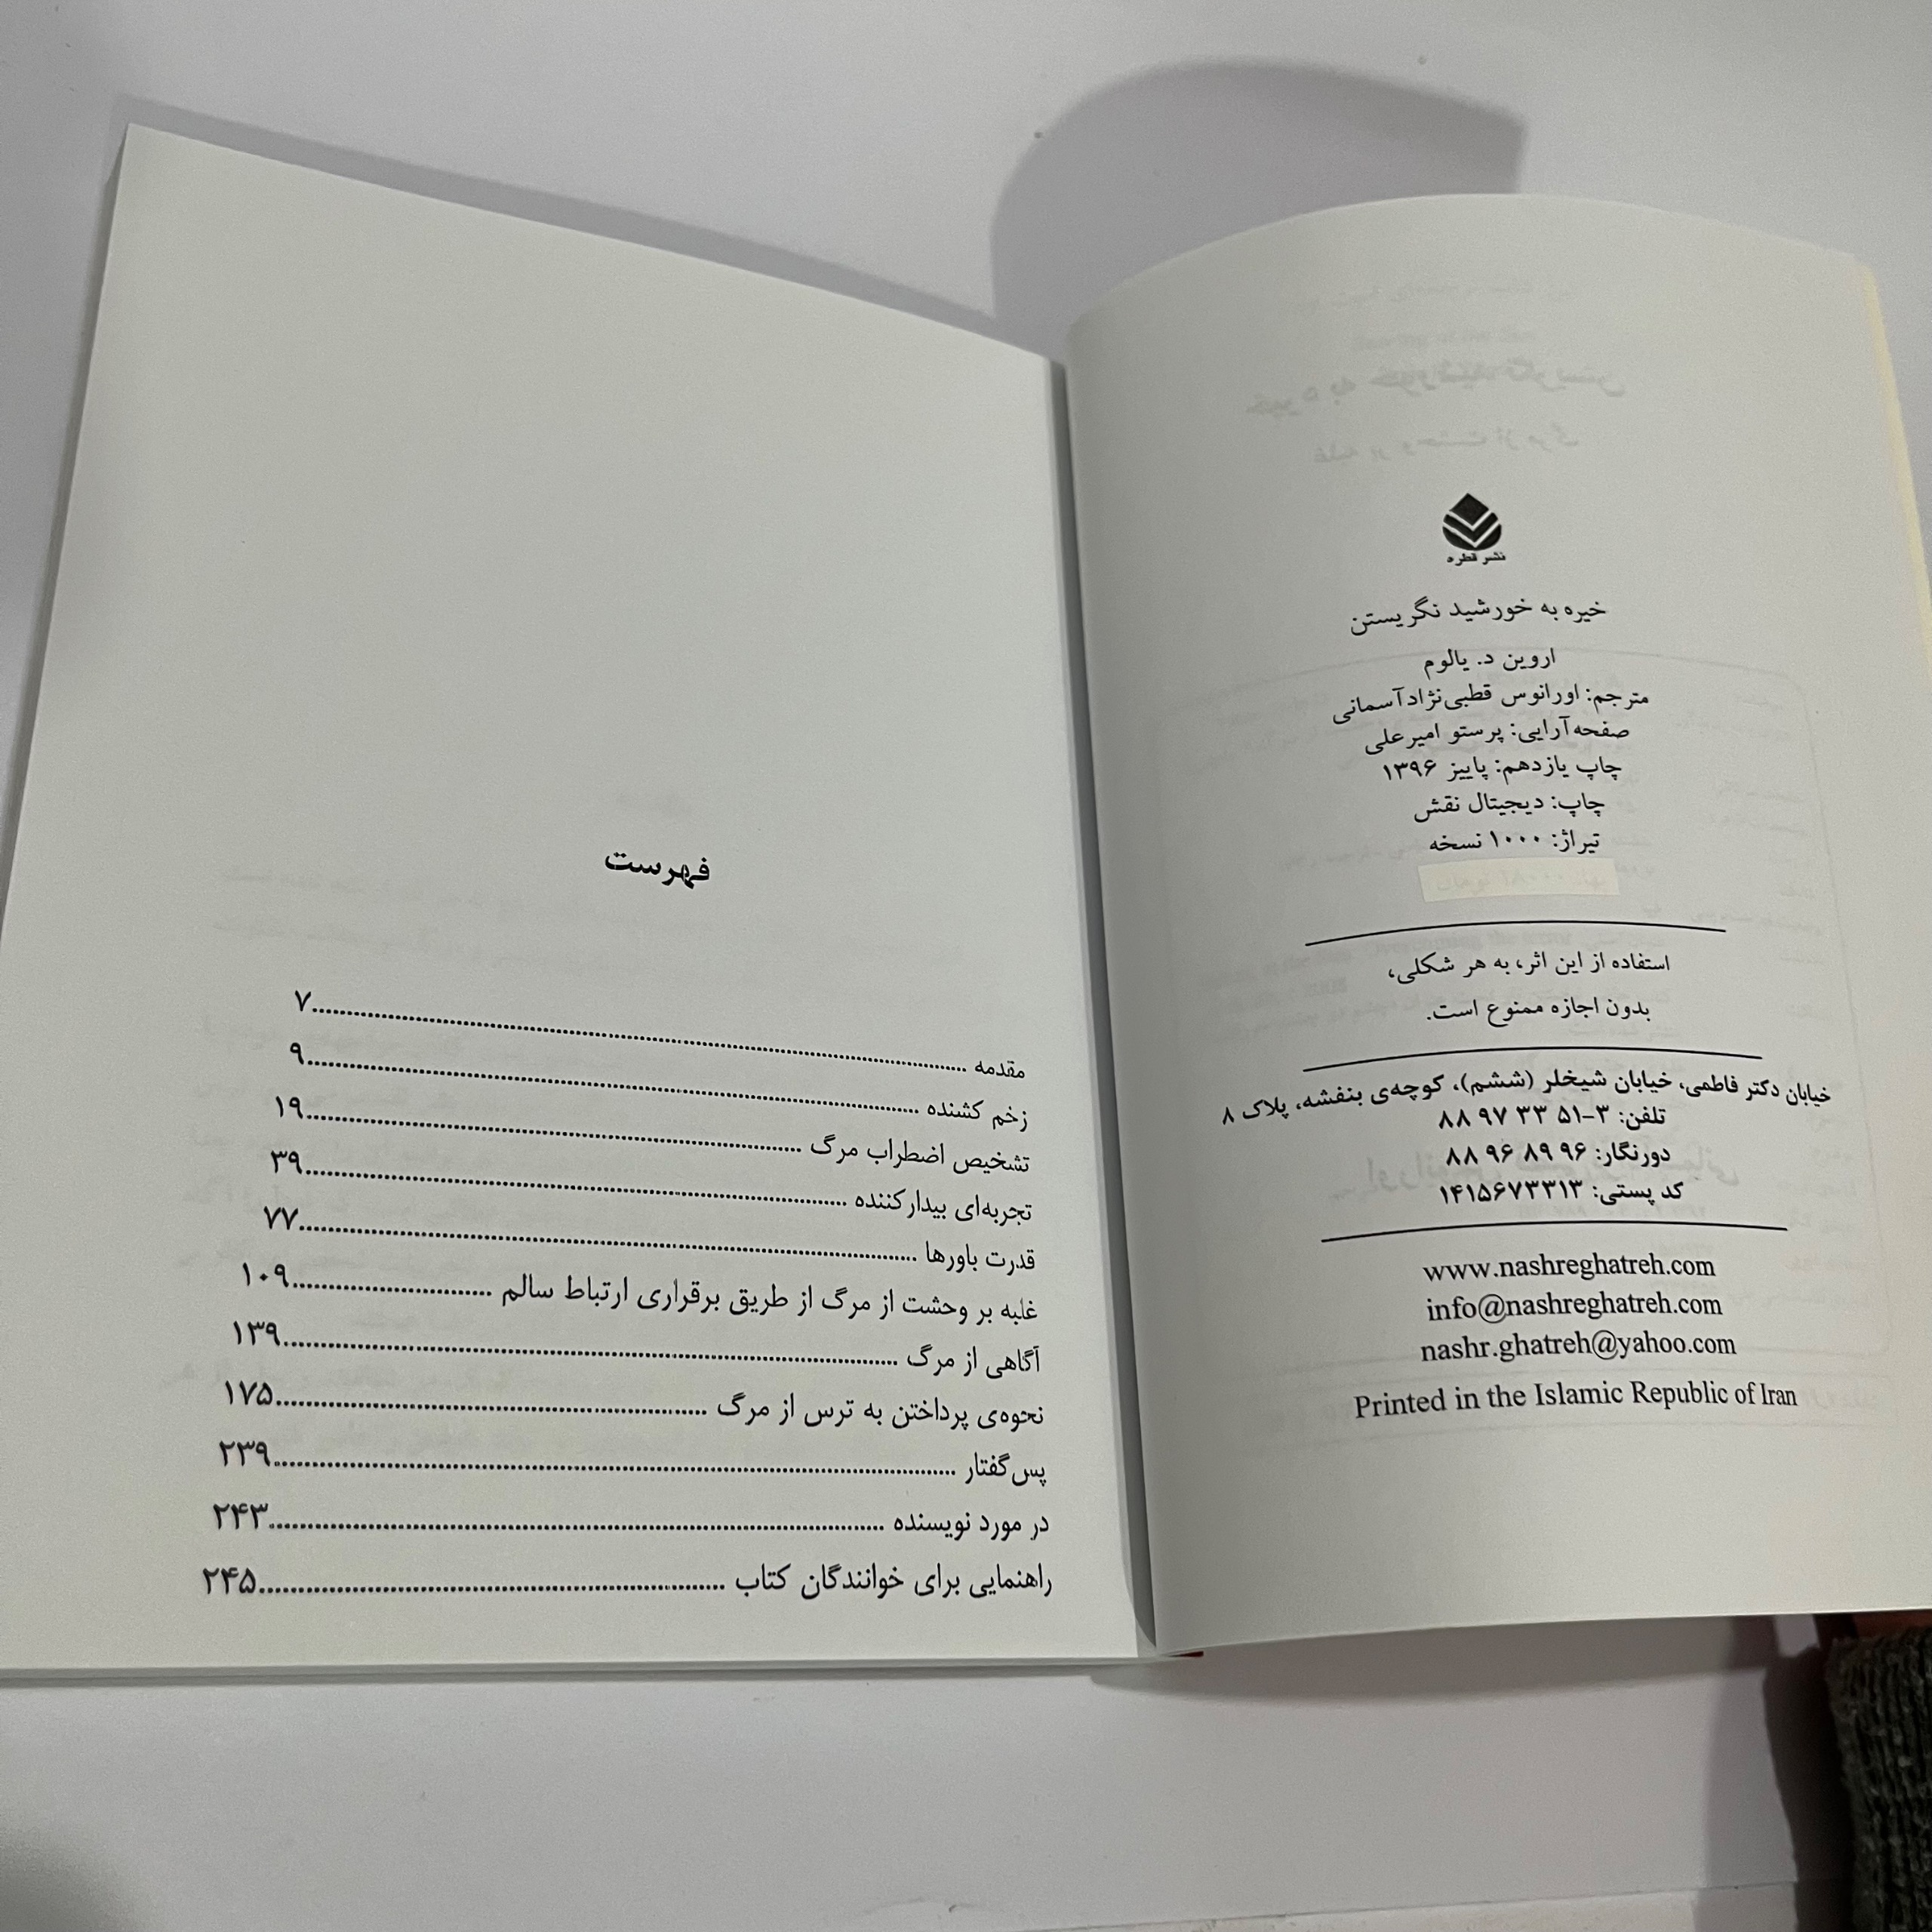 نشر قطره
خیره به خورشید نگریستن
اروین د. یالوم
مترجم: اورانوس قطبی‌نژادآسمانی
صفحه‌آرایی: پرستو امیرعلی
چاپ یازدهم: پاییز ۱۳۹۶
چاپ: دیجیتال نقش
تیراژ: ۱۰۰۰ نسخه
استفاده از این اثر، به هر شکلی،
بدون اجازه ممنوع است.
خیابان دکتر فاطمی، خیابان شیخلر (ششم)، کوچه‌ی بنفشه، پلاک ۸
تلفن: ۳-۵۱ ۳۳ ۹۷ ۸۸
دورنگار: ۹۶ ۸۹ ۹۶ ۸۸
کد پستی: ۱۴۱۵۶۷۳۳۱۳
www.nashreghatreh.com
info@nashreghatreh.com
nashr.ghatreh@yahoo.com
Printed in the Islamic Republic of Iran
فهرست
مقدمه ........ ۷
زخم کشنده ........ ۹
تشخیص اضطراب مرگ ........ ۱۹
تجربه‌ای بیدارکننده ........ ۳۹
قدرت باورها ........ ۷۷
غلبه بر وحشت از مرگ از طریق برقراری ارتباط سالم ........ ۱۰۹
آگاهی از مرگ ........ ۱۳۹
نحوه‌ی پرداختن به ترس از مرگ ........ ۱۷۵
پس‌گفتار ........ ۲۳۹
در مورد نویسنده ........ ۲۴۳
راهنمایی برای خوانندگان کتاب ........ ۲۴۵